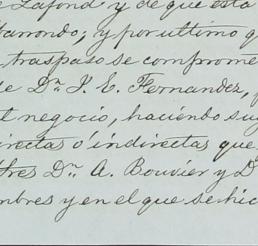 Lafond y de que esta
barrondo, y por ultimo q
traspaso se comprome
de Dn. J. E. Fernandez,
negocio, haciendo su
directas ó indirectas que
tres Dn. A. Bouvier y D
mbres y en el que se hic